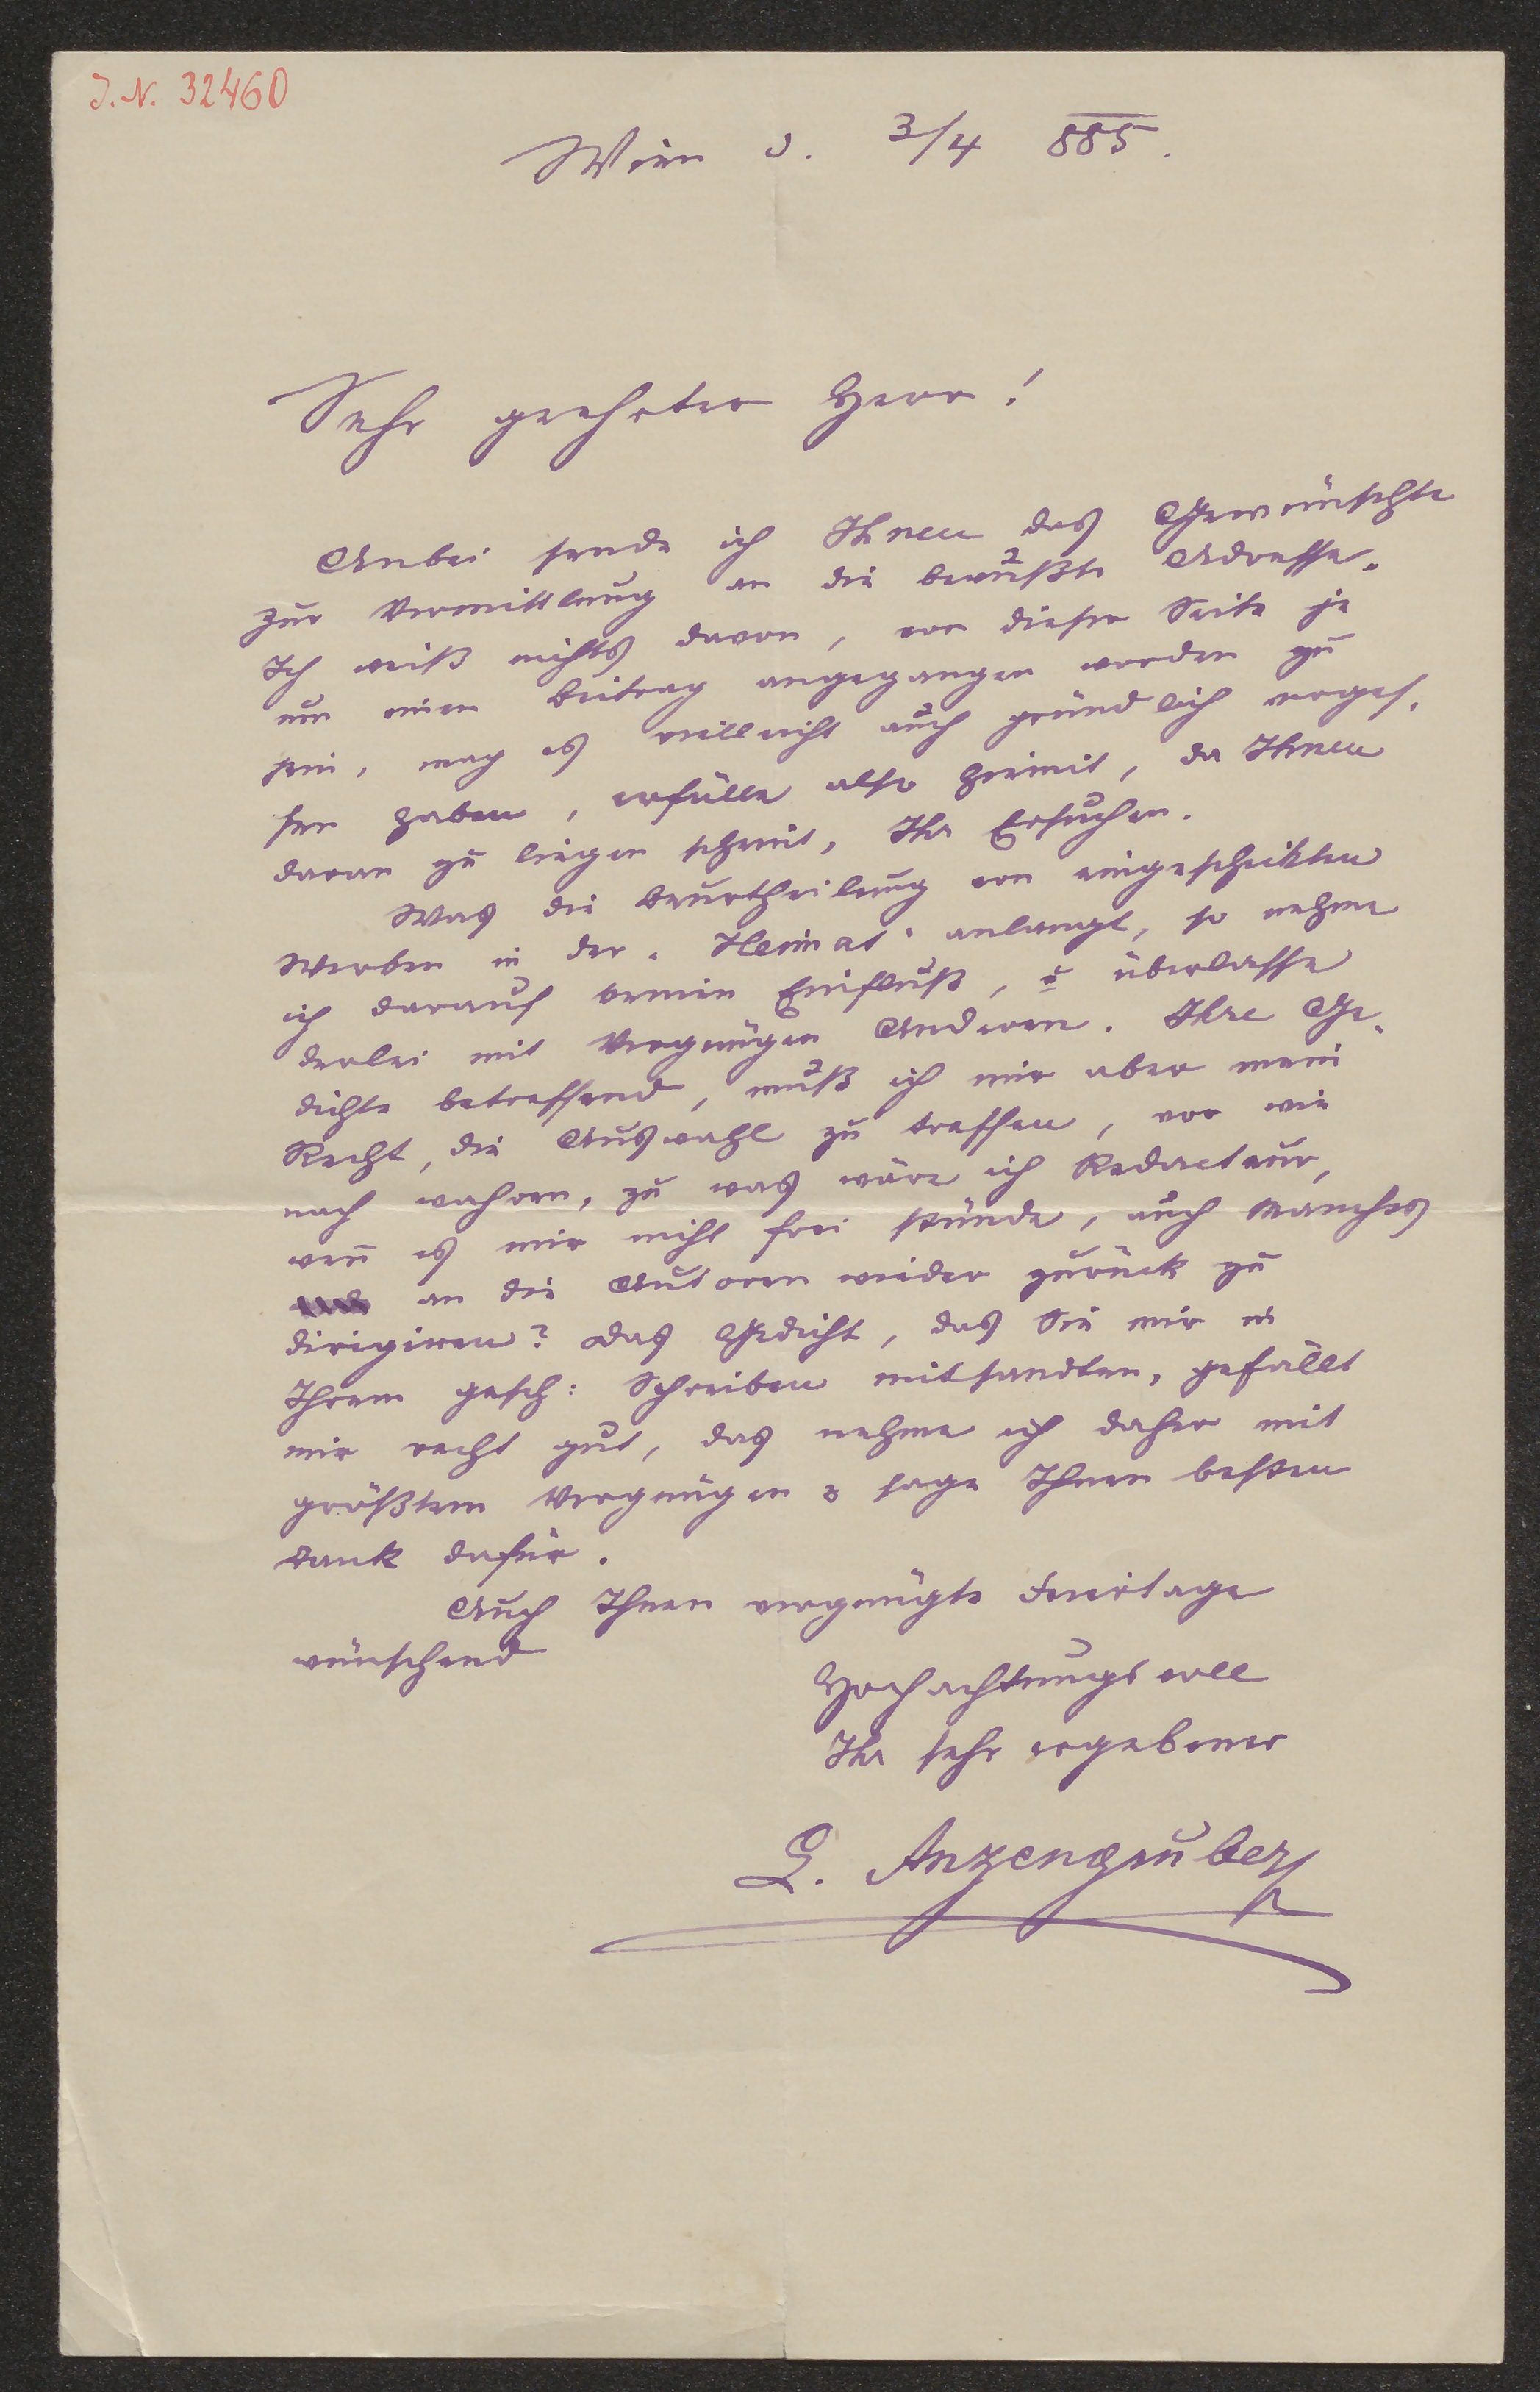 J.N. 32460
Wien d. 3/4 885.
Sehr geehrter Herr!
Anbei sende ich Ihnen das Gewünschte
zur Vermittlung an die bewußte Adresse.
Ich weiß nichts davon, von dieser Seite je
um einen Beitrag angegangen worden zu
sein, mag es vielleicht auch gründlich verges-
sen haben, erfülle also hiemit, da Ihnen
daran zu liegen scheint, Ihr Ersuchen.
Was die Beurtheilung von eingeschickten
Werken in der „Heimat" anlangt, so nehme
ich darauf keinen Einfluß, u überlasse
derlei mit Vergnügen Anderen. Ihre Ge-
dichte betreffend, muß ich mir aber mein
Recht, die Auswahl zu treffen, vor wie
nach wahren, zu was wäre ich Redacteur,
weñ es mir nicht frei stünde, auch Manches
an die Autoren wieder zurück zu
dirigiren? Das Gedicht, das Sie mir in
Ihrem gesch: Schreiben mitsandten, gefällt
mir recht gut, das nehme ich daher mit
größtem Vergnügen u sage Ihnen besten
Dank dafür.
Auch Ihnen vergnügte Feiertage
wünschend
Hochachtungsvoll
Ihr sehr ergebener
L. Anzengruber